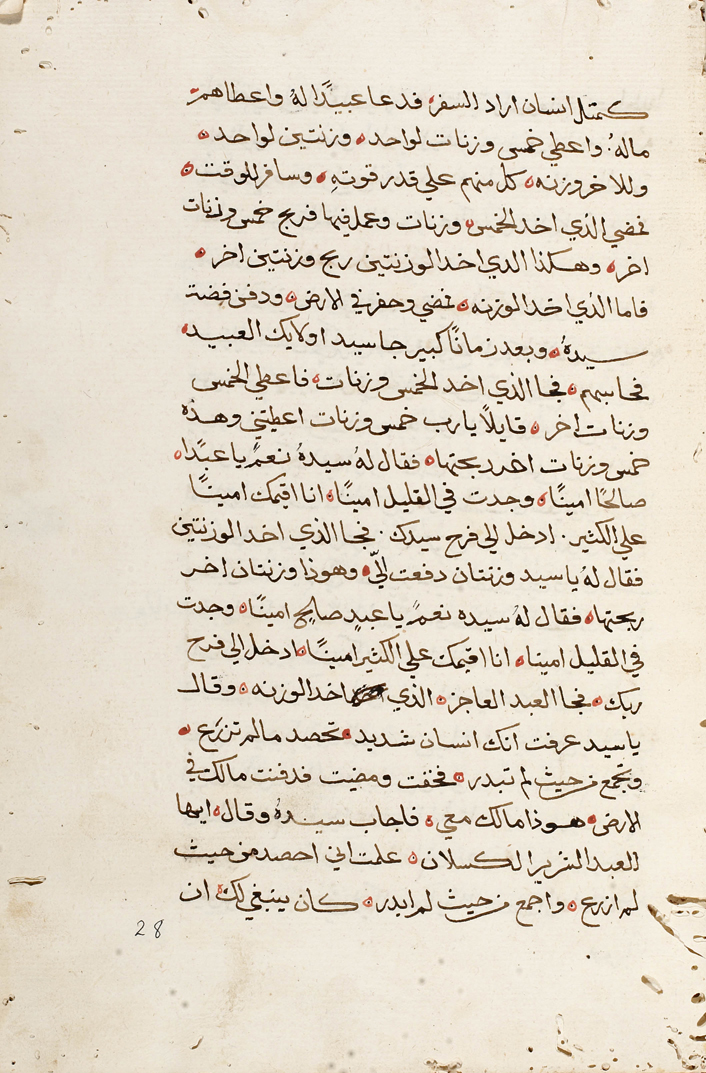 كمتل انسان اراد السفر، فدعا عبيدًا لهُ واعطاهم
مالهُ. واعطي خمس وزنات لواحد ه وزنتين لواحد ه
وللاخر وزنه ه كل منهم علي قدر قوتهِ ه وسافر للوقت ه
فمضي الذي اخد الخمس ه وزنات وعمل فيها فربح خمس وزنات
اخر ه وهكذا الدي اخد الوزنتين ربح وزنتين اخر ه
فاما الذي اخد الوزنه ه فمضي وحفر في الارض ه ودفن فضة
سيدهُ ه وبعد زمانًا كبير جا سيد اولايك العبيد ه
فحاسبهم ه فجا الذي اخد الخمس وزنات ه فاعطي الخمس
وزنات اخر ه قايلًا يارب خمس وزنات اعطيتني وهذه
خمس وزنات اخر ربحتها ه فقال لهُ سيدهُ نعم يا عبدًا ه
صالحًا امينًا ه وجدت في القليل امينًا ه انا اقيمك امينًا
علي الكثير. ادخل الي فرح سيدك. فجا الذي اخد الوزنتين
فقال لهُ يا سيد وزنتان دفعت اليّ ه وهوذا وزنتان اخر
ربحتها ه فقال لهُ سيده نعم يا عبدٍ صالحٍ امينًا ه وجدت
في القليل امينا ه انا اقيمك علي الكثير امينًا ه ادخل الي فرح
ربك ه فجا العبد العاجز ه الذي اخد الوزنه ه وقال
يا سيد عرفت انك انسان شديد ه تحصد مالم تزرع ه
وتجمع من حيث لم تبدر ه فخفت ومضيت فدفنت مالك في
الارض ه هوذا مالك معي ه فاجاب سيدهُ وقال ه ايها
العبد الشرير الكسلان ه علمت اني احصد من حيث
لم ازرع ه واجمع من حيث لم ابدر ه كان ينبغي لك ه ان
28